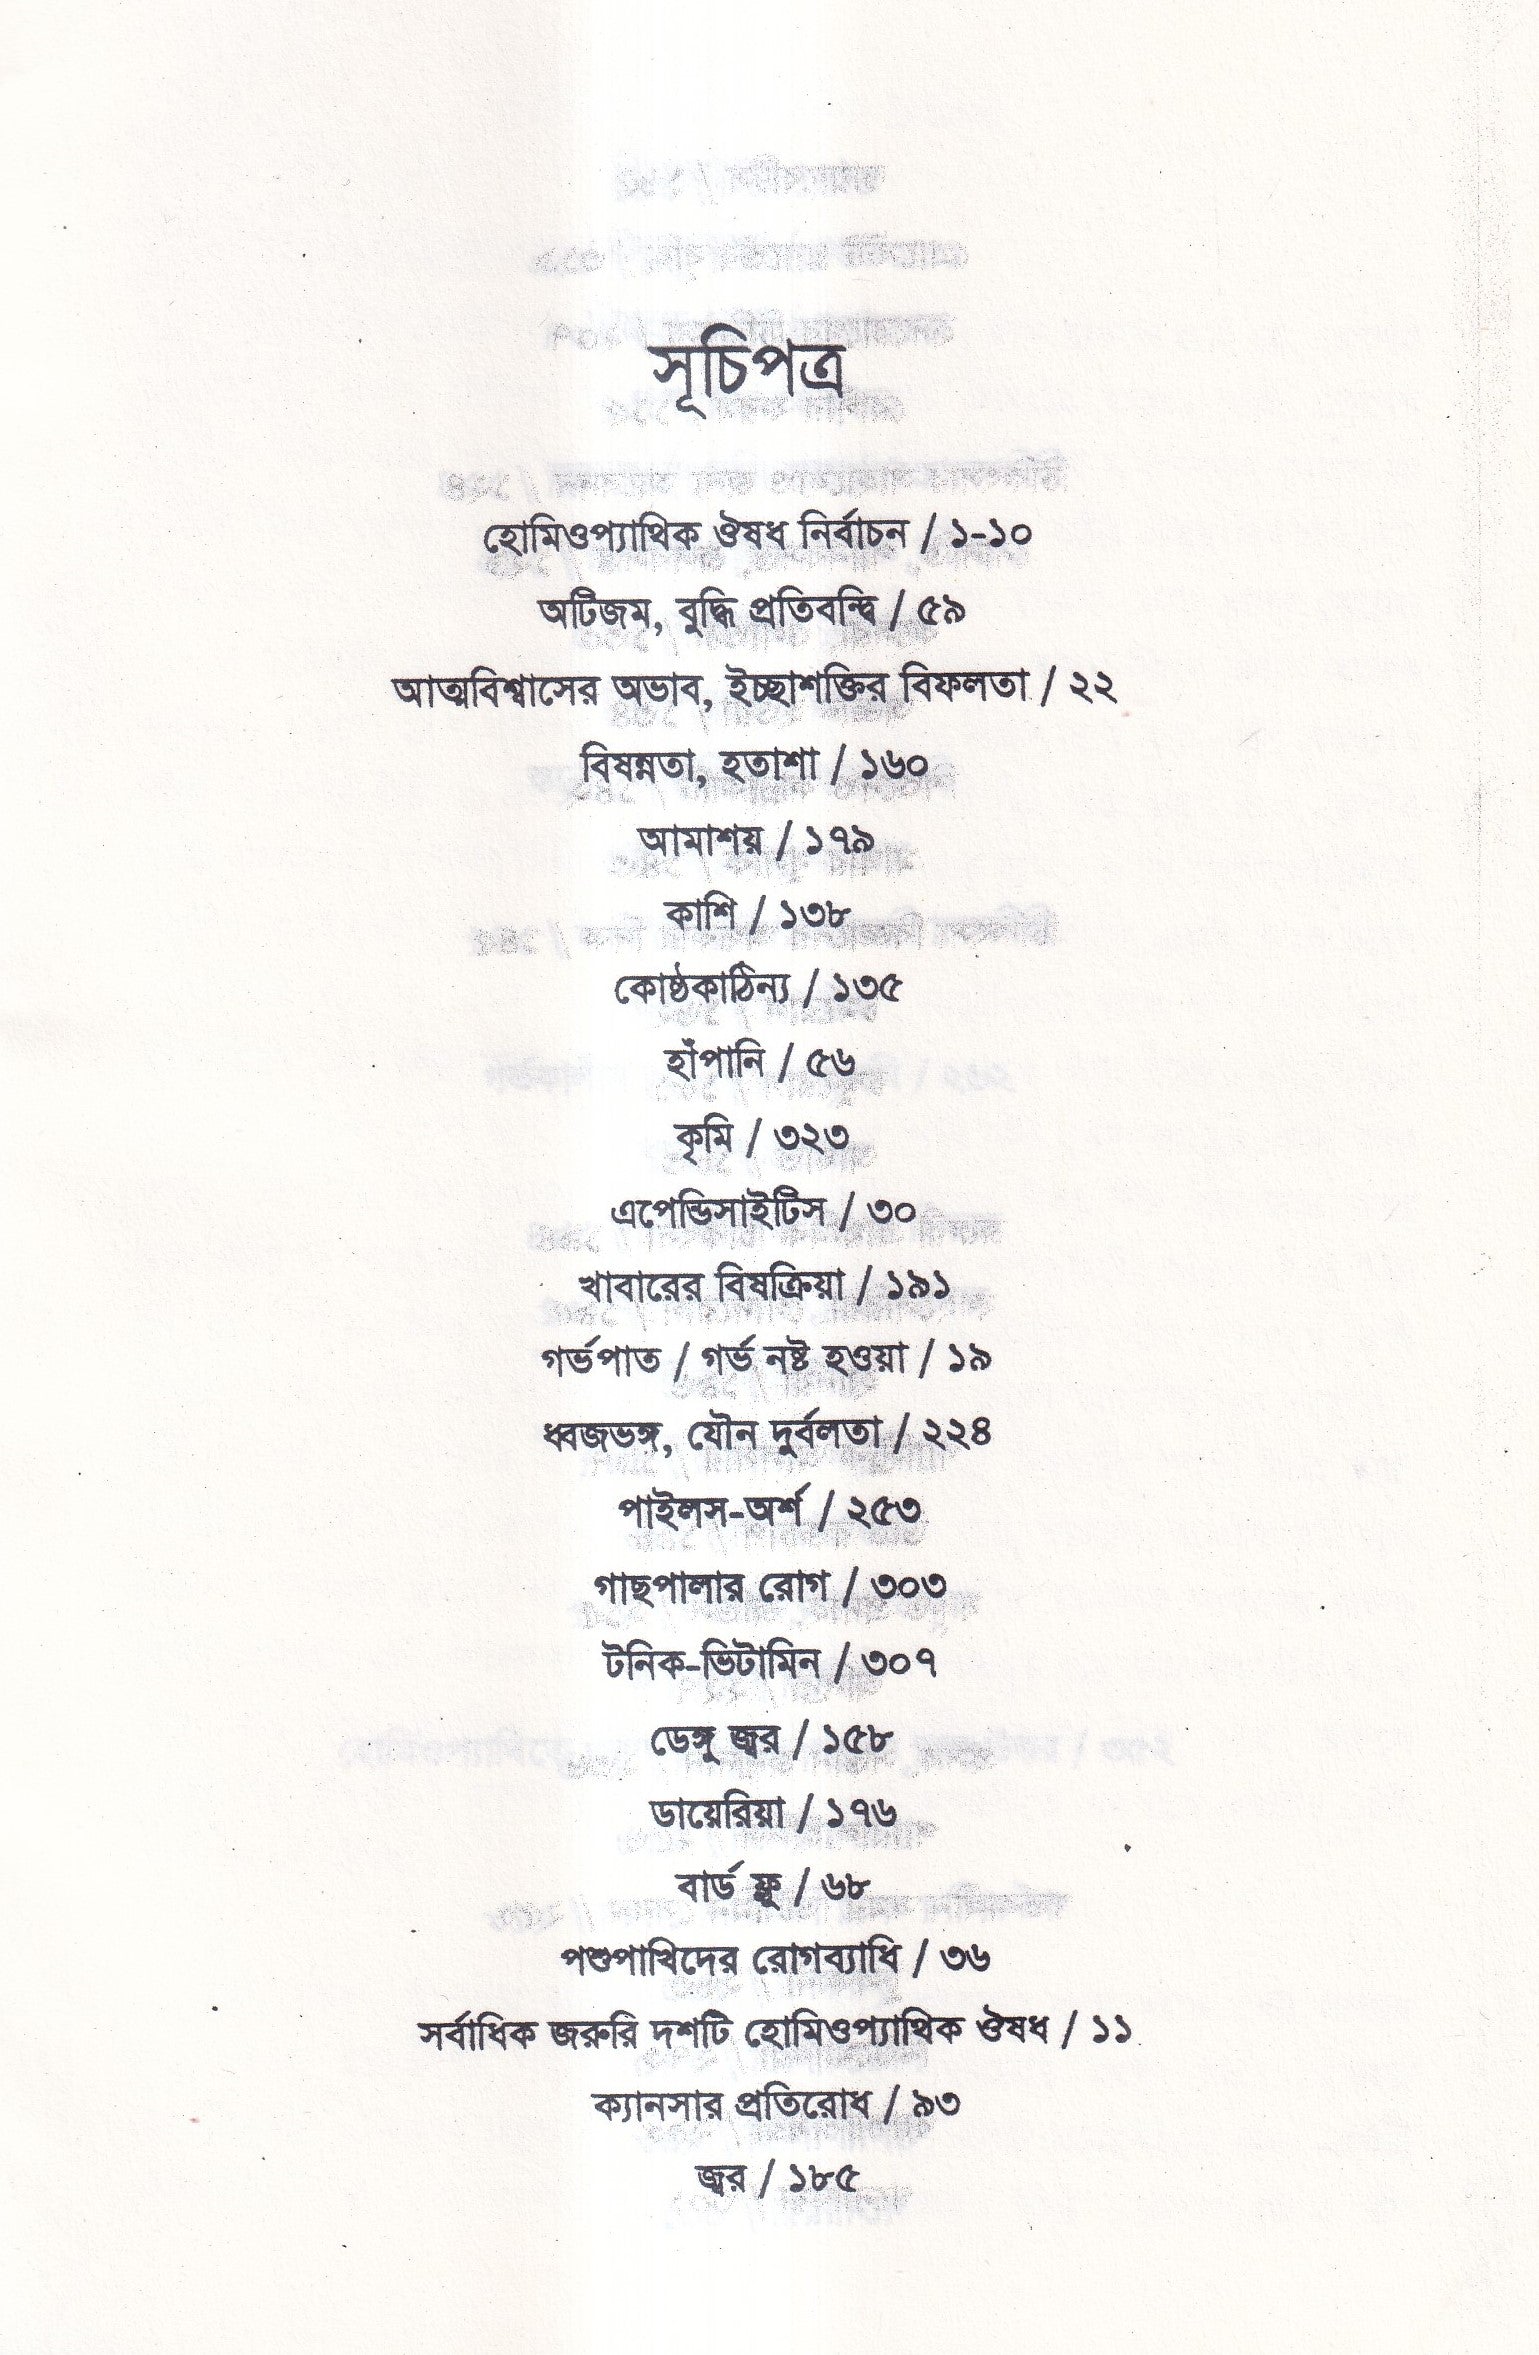 সূচিপত্র
হোমিওপ্যাথিক ঔষধ নির্বাচন / ১-১০
অটিজম, বুদ্ধি প্রতিবন্দ্বি / ৫৯
আত্মবিশ্বাসের অভাব, ইচ্ছাশক্তির বিফলতা / ২২
বিষন্নতা, হতাশা / ১৬০
আমাশয় / ১৭৯
কাশি / ১৩৮
কোষ্ঠকাঠিন্য / ১৩৫
হাঁপানি / ৫৬
কৃমি / ৩২৩
এপেন্ডিসাইটিস / ৩০
খাবারের বিষক্রিয়া / ১৯১
গর্ভপাত / গর্ভ নষ্ট হওয়া / ১৯
ধ্বজভঙ্গ, যৌন দুর্বলতা / ২২৪
পাইলস-অর্শ / ২৫৩
গাছপালার রোগ / ৩০৩
টনিক-ভিটামিন / ৩০৭
ডেঙ্গু জ্বর / ১৫৮
ডায়েরিয়া / ১৭৬
বার্ড ফ্লু / ৬৮
পশুপাখিদের রোগব্যাধি / ৩৬
সর্বাধিক জরুরি দশটি হোমিওপ্যাথিক ঔষধ / ১১
ক্যানসার প্রতিরোধ / ৯৩
জ্বর / ১৮৫